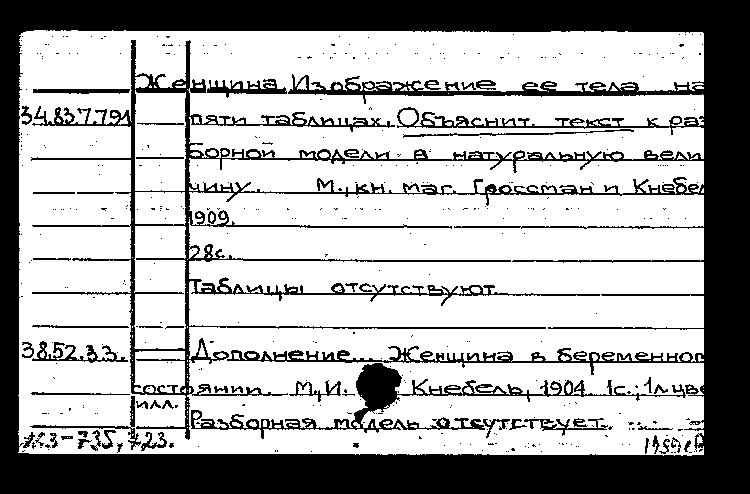 Женщина. Изображение ее тела на
34.837.791 пяти таблицах. Объяснит. текст к раз
борной модели в натуральную вели
чину. М., кн. маг. Гроссман и Кнебель
1909.
28с.
Таблицы отсутствуют
38.52.33. Дополнение... Женщина в беременном
состоянии. М., И. Кнебель, 1904 1с.; 1л. цве
илл.
Разборная модель отсутствует.